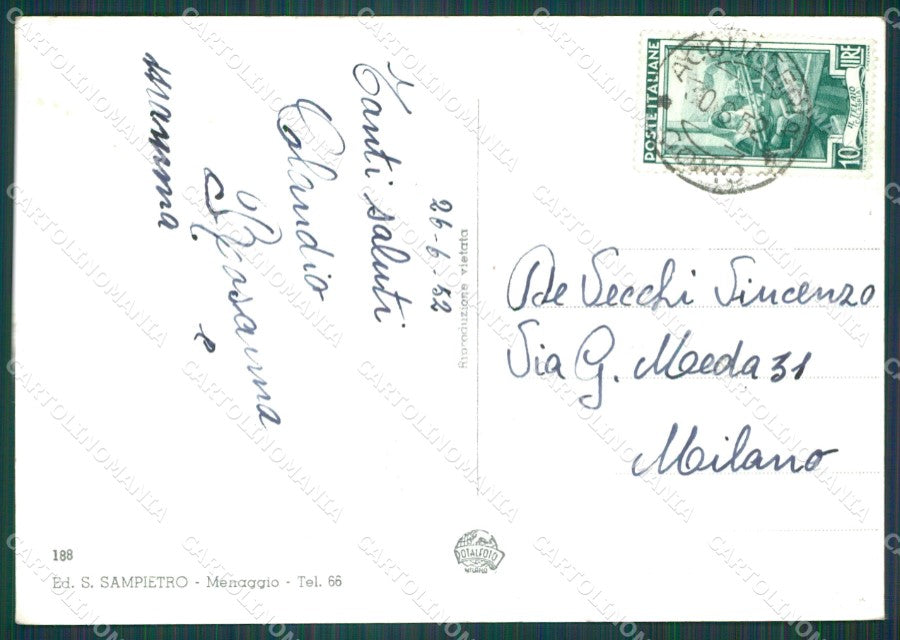 Tanti saluti
Claudio
Rosanna
e
mamma
26-6-52
Riproduzione vietata
POSTE ITALIANE
10 LIRE
De Vecchi Vincenzo
Via G. Meda 31
Milano
188
Ed. S. SAMPIETRO - Menaggio - Tel. 66
ROTALFOTO
MILANO
CARTOLINOMANIA